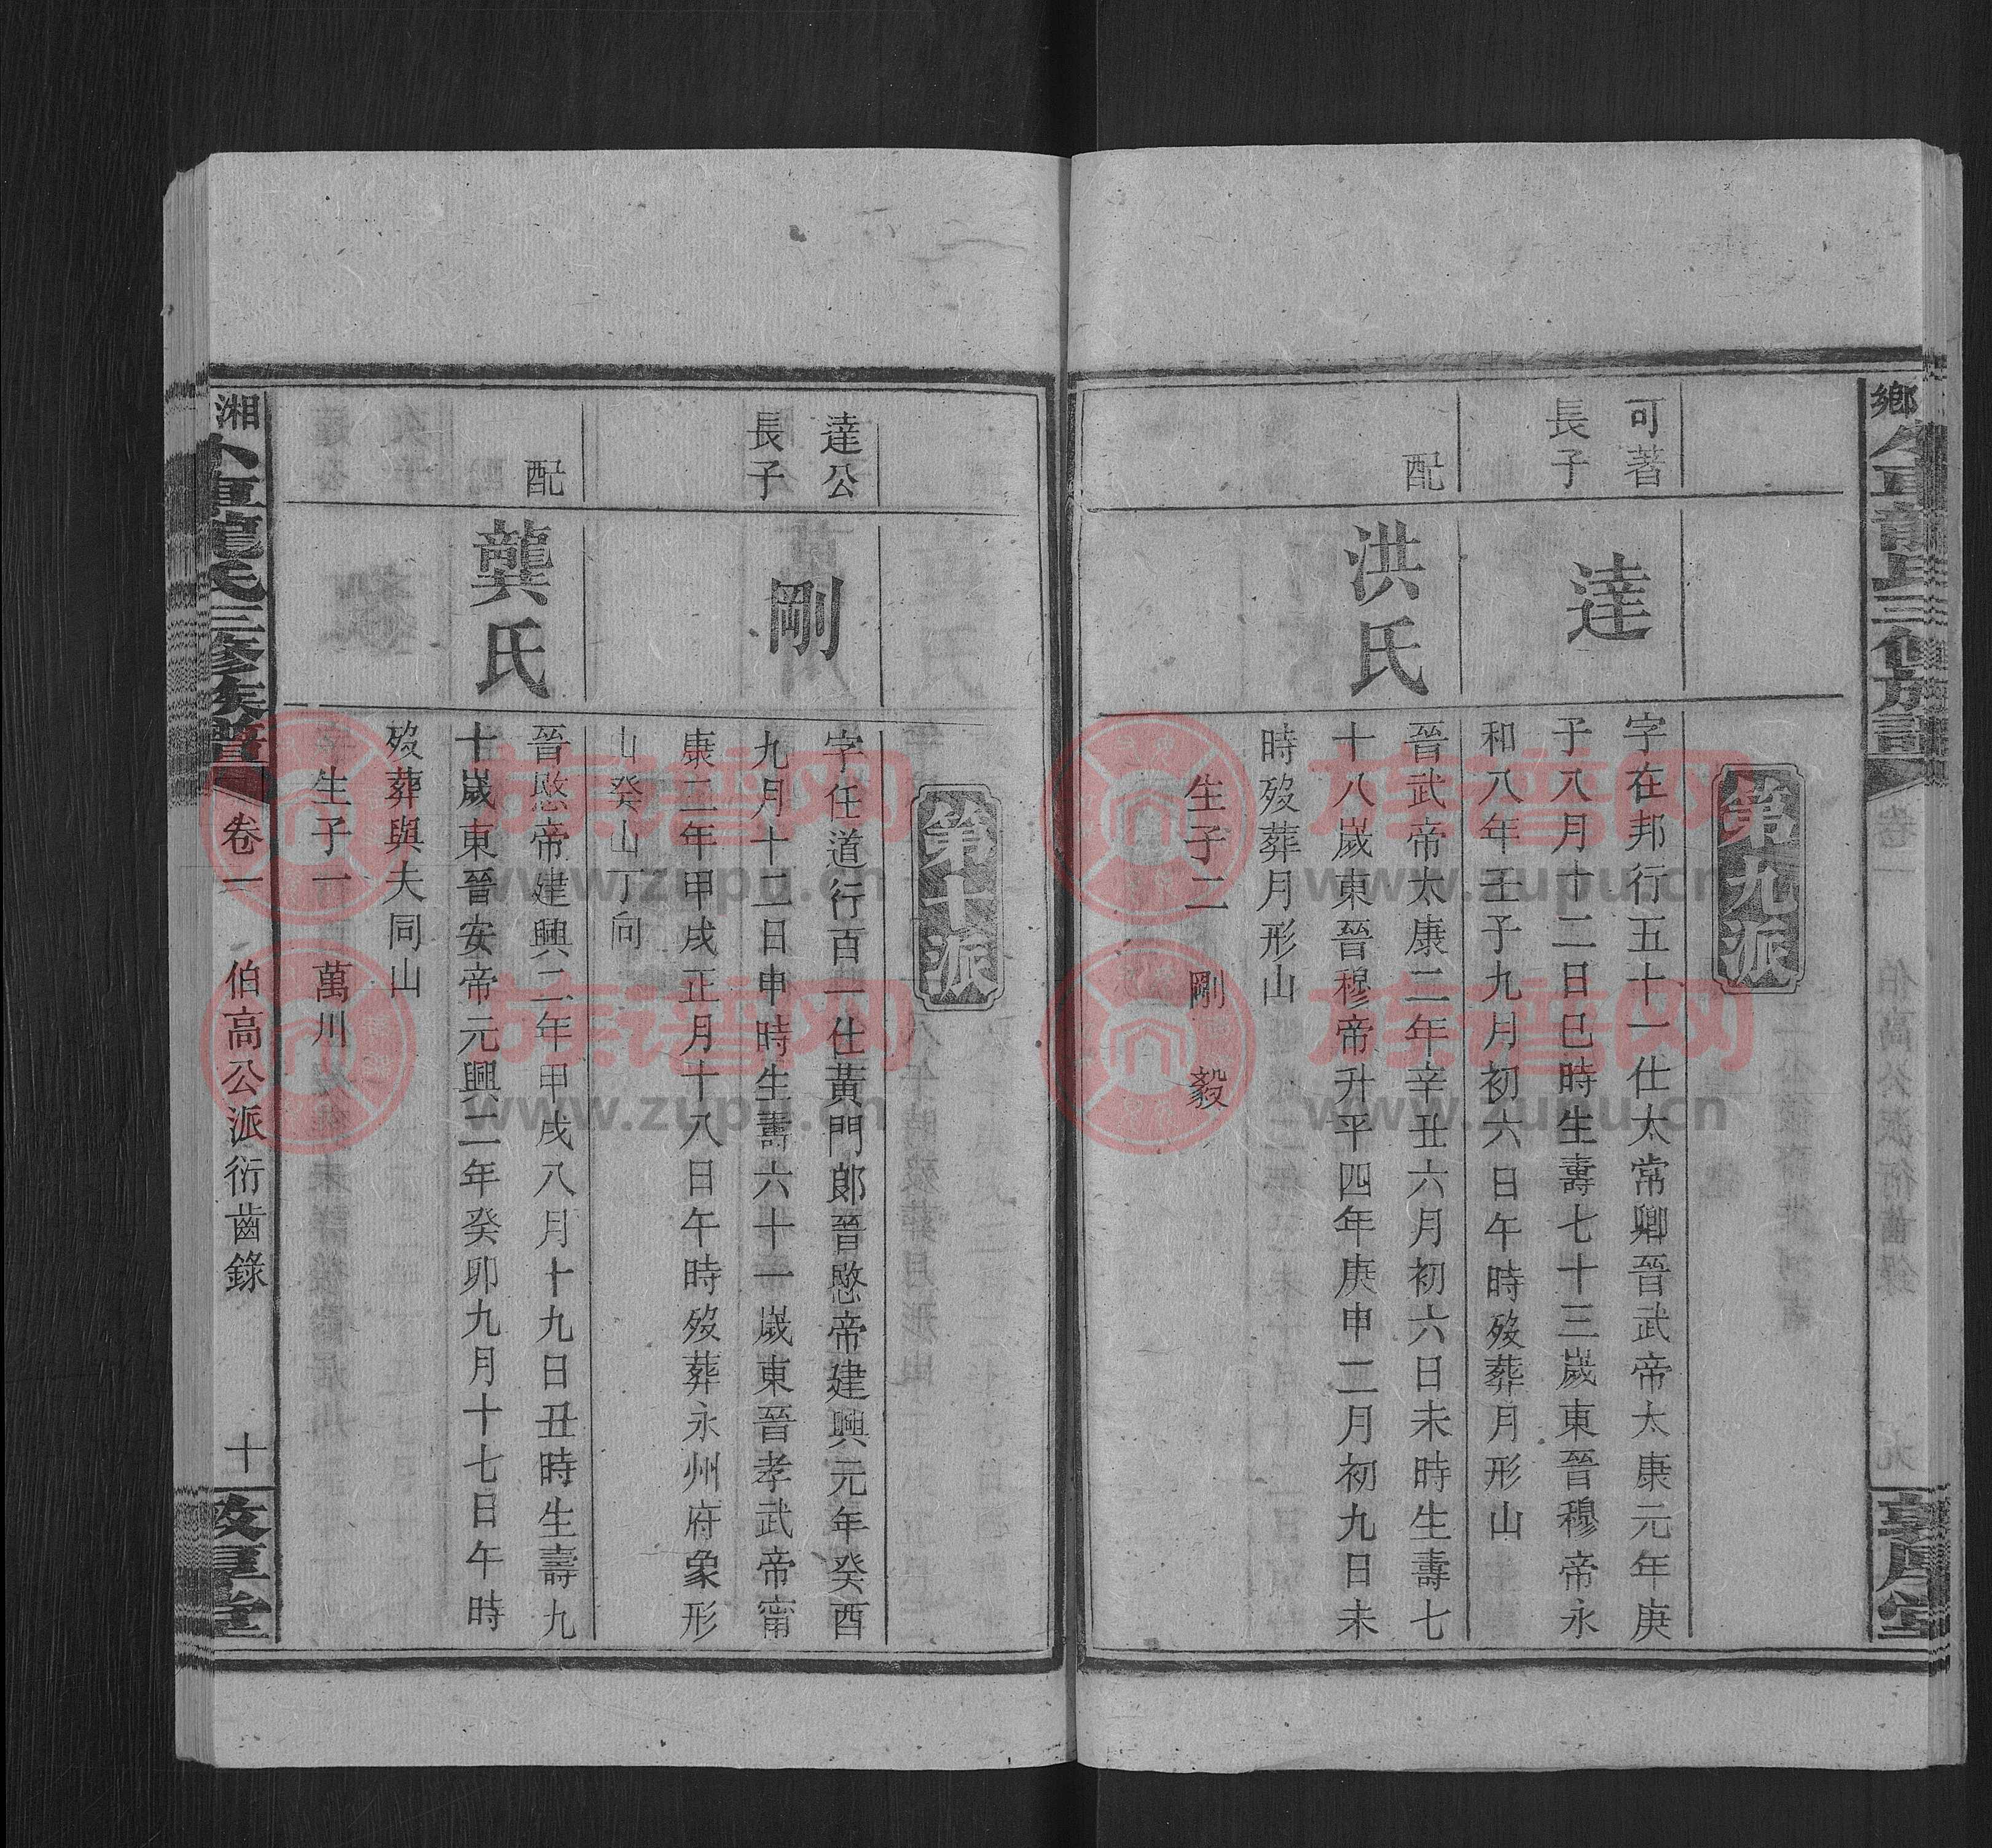 鄉
第九派
可著
長子
達
字在邦行五十一仕太常卿晉武帝太康元年庚
子八月十二日巳時生壽七十三歲東晉穆帝永
和八年壬子九月初六日午時歿葬月形山
配
洪氏
晉武帝太康二年辛丑六月初六日未時生壽七
十八歲東晉穆帝升平四年庚申二月初九日未
時歿葬月形山
生子二 剛 毅
第十派
達公
長子
剛
字任道行百一仕黃門郎晉愍帝建興元年癸酉
九月十二日申時生壽六十一歲東晉孝武帝甯
康二年甲戌正月十八日午時歿葬永州府象形
山癸山丁向
配
龔氏
晉愍帝建興二年甲戌八月十九日丑時生壽九
十歲東晉安帝元興二年癸卯九月十七日午時
歿葬與夫同山
生子一 萬川
湘
氏三修族譜
卷一
伯高公派衍齒錄
十
敦厚堂
族譜网
www.zupu.cn
族譜网
www.zupu.cn
族譜网
www.zupu.cn
族譜网
www.zupu.cn